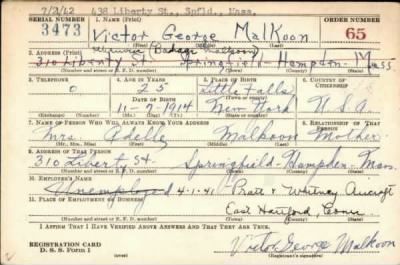 7/2/42 438 Liberty St., Spfld., Mass.
SERIAL NUMBER 1. NAME (Print) ORDER NUMBER
3473 Victor George Malkoon 65
(First) (Middle) (Last)
2. ADDRESS (Print)
310 Liberty St Springfield - Hampden - Mass
(Number and street or R. F. D. number) (Town) (County) (State)
3. TELEPHONE 4. AGE IN YEARS 5. PLACE OF BIRTH 6. COUNTRY OF CITIZENSHIP
0 25 Little Falls
DATE OF BIRTH (Town or county)
11-7-1914 New York U.S.A.
(Exchange) (Number) (Mo.) (Day) (Yr.) (State or country)
7. NAME OF PERSON WHO WILL ALWAYS KNOW YOUR ADDRESS 8. RELATIONSHIP OF THAT PERSON
Mrs. Adelle Malkoon Mother
(Mr., Mrs., Miss) (First) (Middle) (Last)
9. ADDRESS OF THAT PERSON
310 Liberty St. Springfield - Hampden, Mass.
(Number and street or R. F. D. number) (Town) (County) (State)
10. EMPLOYER'S NAME
Unemployed 4-1-41 Pratt & Whitney Aircraft
11. PLACE OF EMPLOYMENT OR BUSINESS
East Hartford, Conn.
(Number and street or R. F. D. number) (Town) (County) (State)
I AFFIRM THAT I HAVE VERIFIED ABOVE ANSWERS AND THAT THEY ARE TRUE.
REGISTRATION CARD
D. S. S. Form 1
Victor George Malkoon
(Registrant's signature)